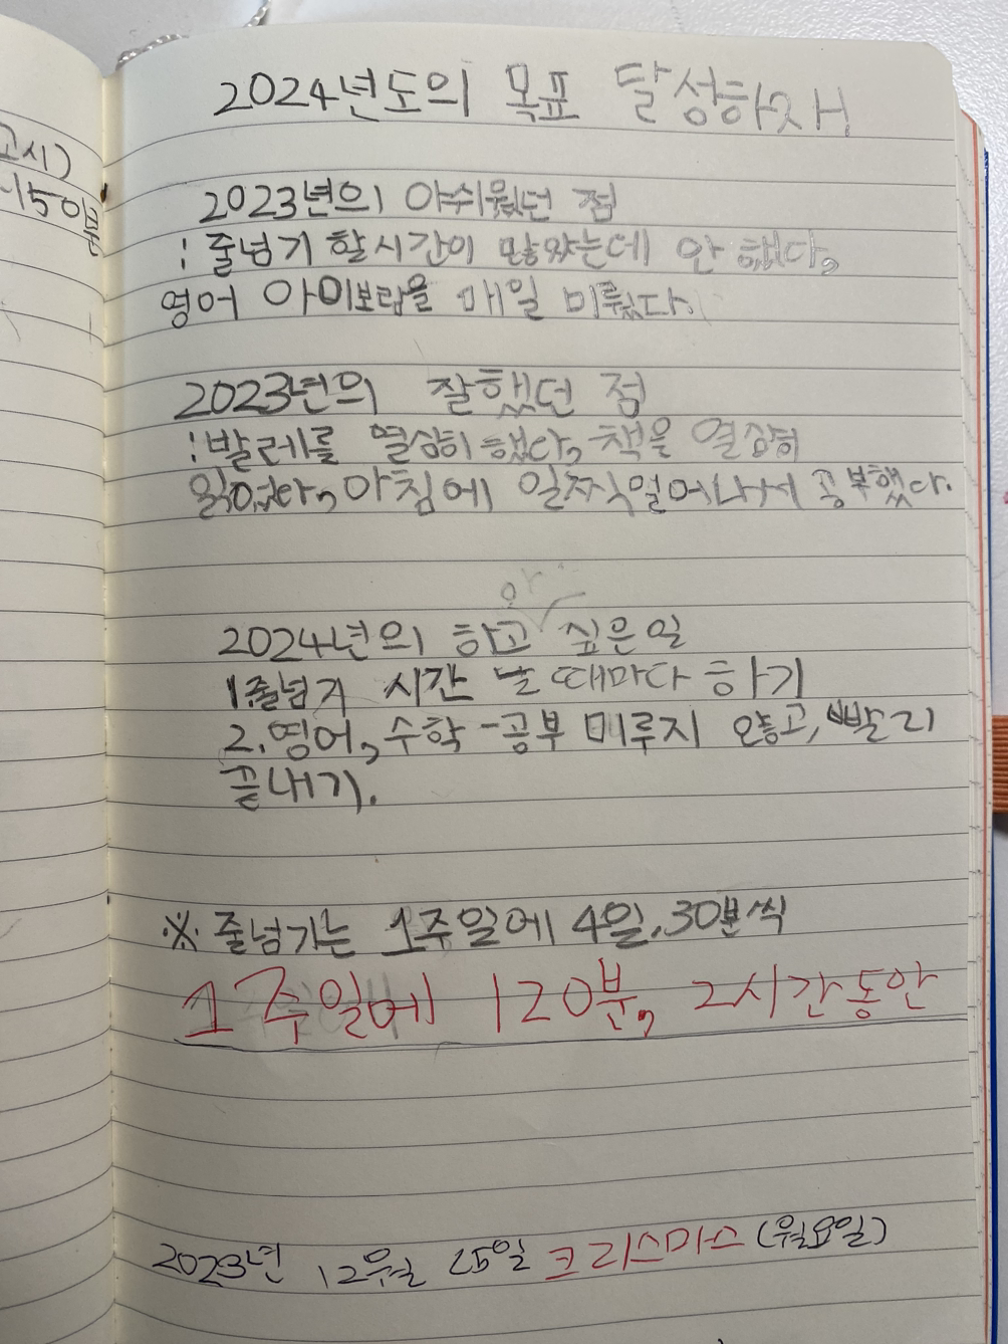 고시)
-150분
2024년도의 목표 달성하자!
2023년의 아쉬웠던 점
: 줄넘기 할 시간이 많았는데 안 했다,
영어 아이보람을 매일 미뤘다.
2023년의 잘했던 점
: 발레를 열심히 했다, 책을 열심히
읽었다, 아침에 일찍 일어나서 공부했다.
2024년의 하고 싶은 일
1. 줄넘기 시간 날 때마다 하기
2. 영어, 수학 - 공부 미루지 않고, 빨리
끝내기.
※ 줄넘기는 1주일에 4일, 30분씩
1주일에 120분, 2시간 동안
2023년 12월 25일 크리스마스 (월요일)